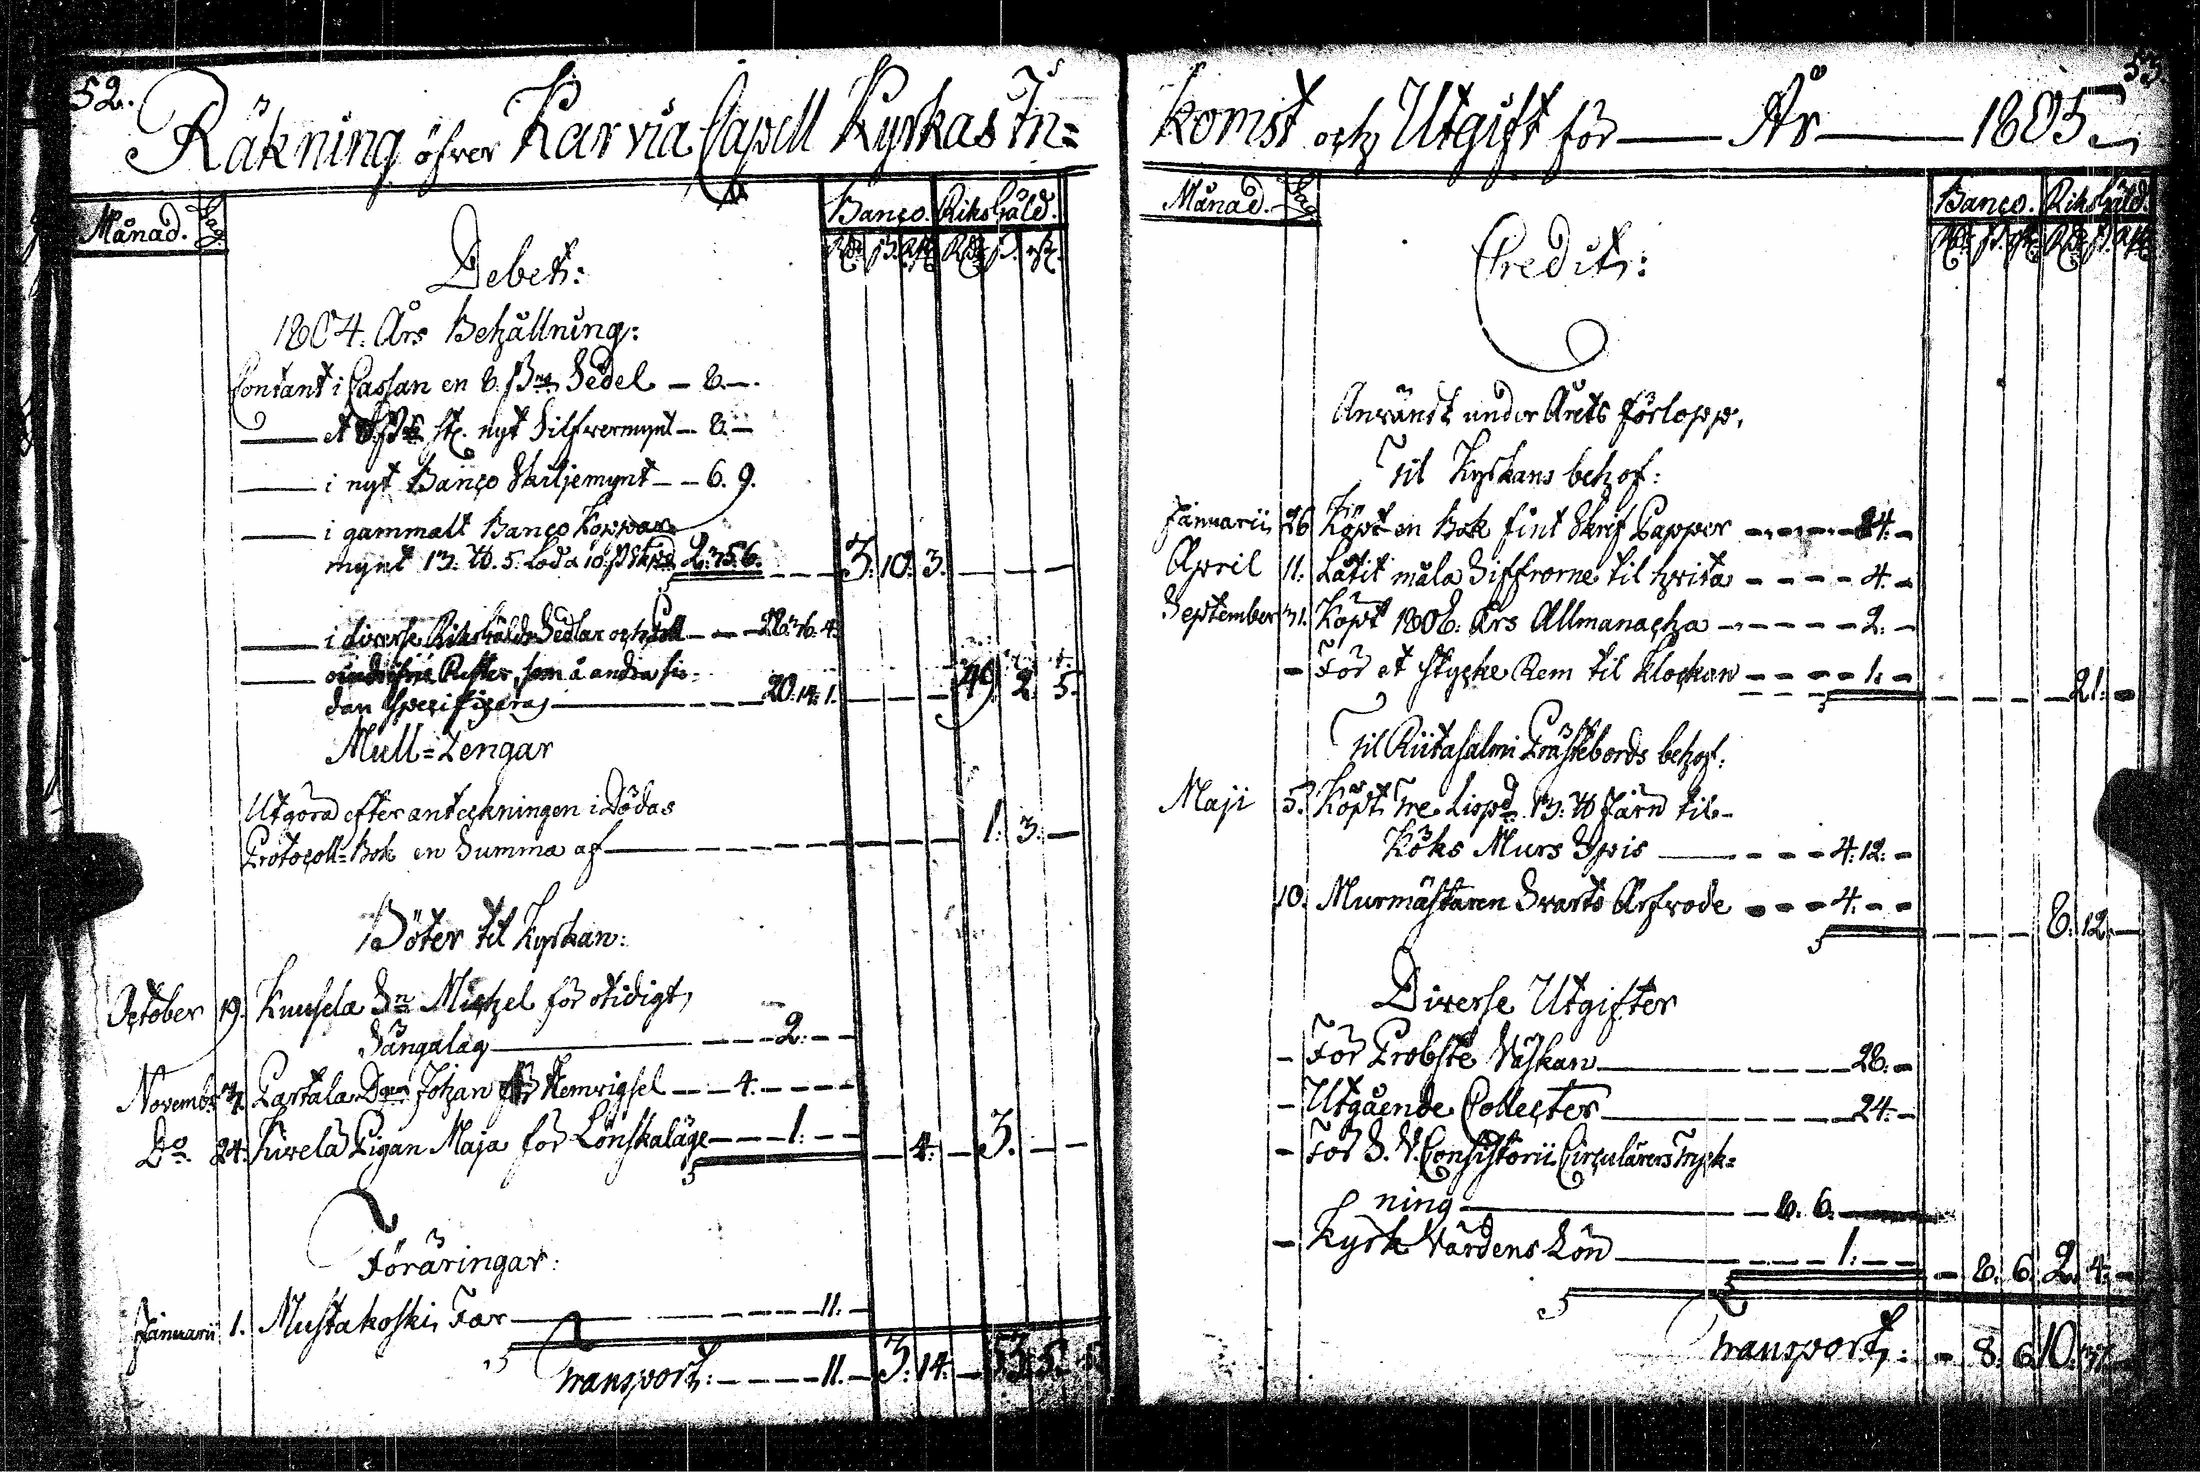 52.
Räkning öfver Karvia Capell Kyrkas In=
Månad. Dag. Banco. Riksgäld.
Rdr ß. rst. Rdr ß. rst.
Debet:
1804. Års Behållning:
Contant i Cassan en 8. ß Bco Sedel — 8. —.
— et 8. ß st. nyt Silfvermynt — 8. —
— i nyt Banco Skiljemynt — — 6. 9.
— i gammalt Banco Koppar=
mynt 13. ℔. 5. Lod a 10 ß Skp. 2. 35. 6. — — 3. 10. 3. — — —
— i diverse Riksgälds Sedlar och — — — 28. 36. 4.
— Rester, som å andra si=
dan specificeras — — — 20. 14. 1. — — — 49. 2. 5.
Mull=Pengar
Utgöra efter anteckningen i Dödas
Protocoll=Bok en Summa af — — — 1. 3. —
Böter til Kyrkan:
October 19. Knusela Sn Michel för otidigt
Sängalag — — — 2. — —
Novembr. Partala Johan för Hemvigsel — — 4. — — —
Do. 24. Kivelä Pigan Maja för Lönskaläge — — — 1. — — — 4. — 3. — —
Föräringar:
Januarii 1. Mustakoski Far — — — 11. —
Transport: — — — 11. — 3. 14. — 53. 5. 5.
53
komst och Utgift för — År — 1805.
Månad. Dag. Banco. Riksgäld.
Rdr ß. rst. Rdr ß. rst.
Credit:
Användt under Årets förlopp,
Til Kyrkans behof:
Januarii 26 Köpt en Bok fint Skrif Papper — — — 24. —
April 11. Låtit måla Siffrorne til hvita — — — — 4. —
September 31. Köpt 1806. Års Allmanacha — — — — 2. —
— För et stycke Rem til Klockan — — — — 1. — — — — — 21. —
Til Riitasalmi Prästebords behof:
Maji 5. Köpt tre Lispd 13. ℔ Järn til
Köks Murs Spis — — — — 4. 12. —
10. Murmästaren Svarts Arfvode — — — 4. — — — — — 8. 12. —
Diverse Utgifter
— För Probste Väskan — — — 28. —
— Utgående Collecter — — — 24. —
— För S. V. Consistorii Circulärers Tryck=
ning — — 8. 6. —
— Kyrk Värdens Lön — — — 1. — — 8. 6. 2. 4. —
Transport: — 8. 6. 10. 37. —